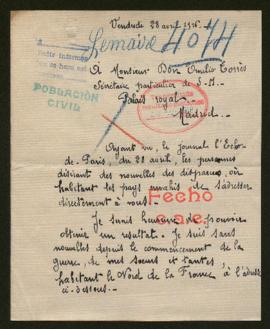 Vendredi 28 avril 1916.
Lemaire 4074
Pedir informes
POBLACIÓN
CIVIL
À Monsieur Don Emilio Torrès
Secrétaire particulier de S. M.
Palais royal
Madrid
Ayant vu, le journal l'Echo
de Paris, du 28 avril, les personnes
désirant des nouvelles des disparus, ou
habitant les pays envahis de s'adresser
directement à vous.
Fecho
c.a.e.
Je serais heureux de pouvoir
obtenir un résultat. Je suis sans
nouvelles depuis le commencement de la
guerre, de mes sœurs et tantes,
habitant le Nord de la France à l'adresse
ci-dessous.